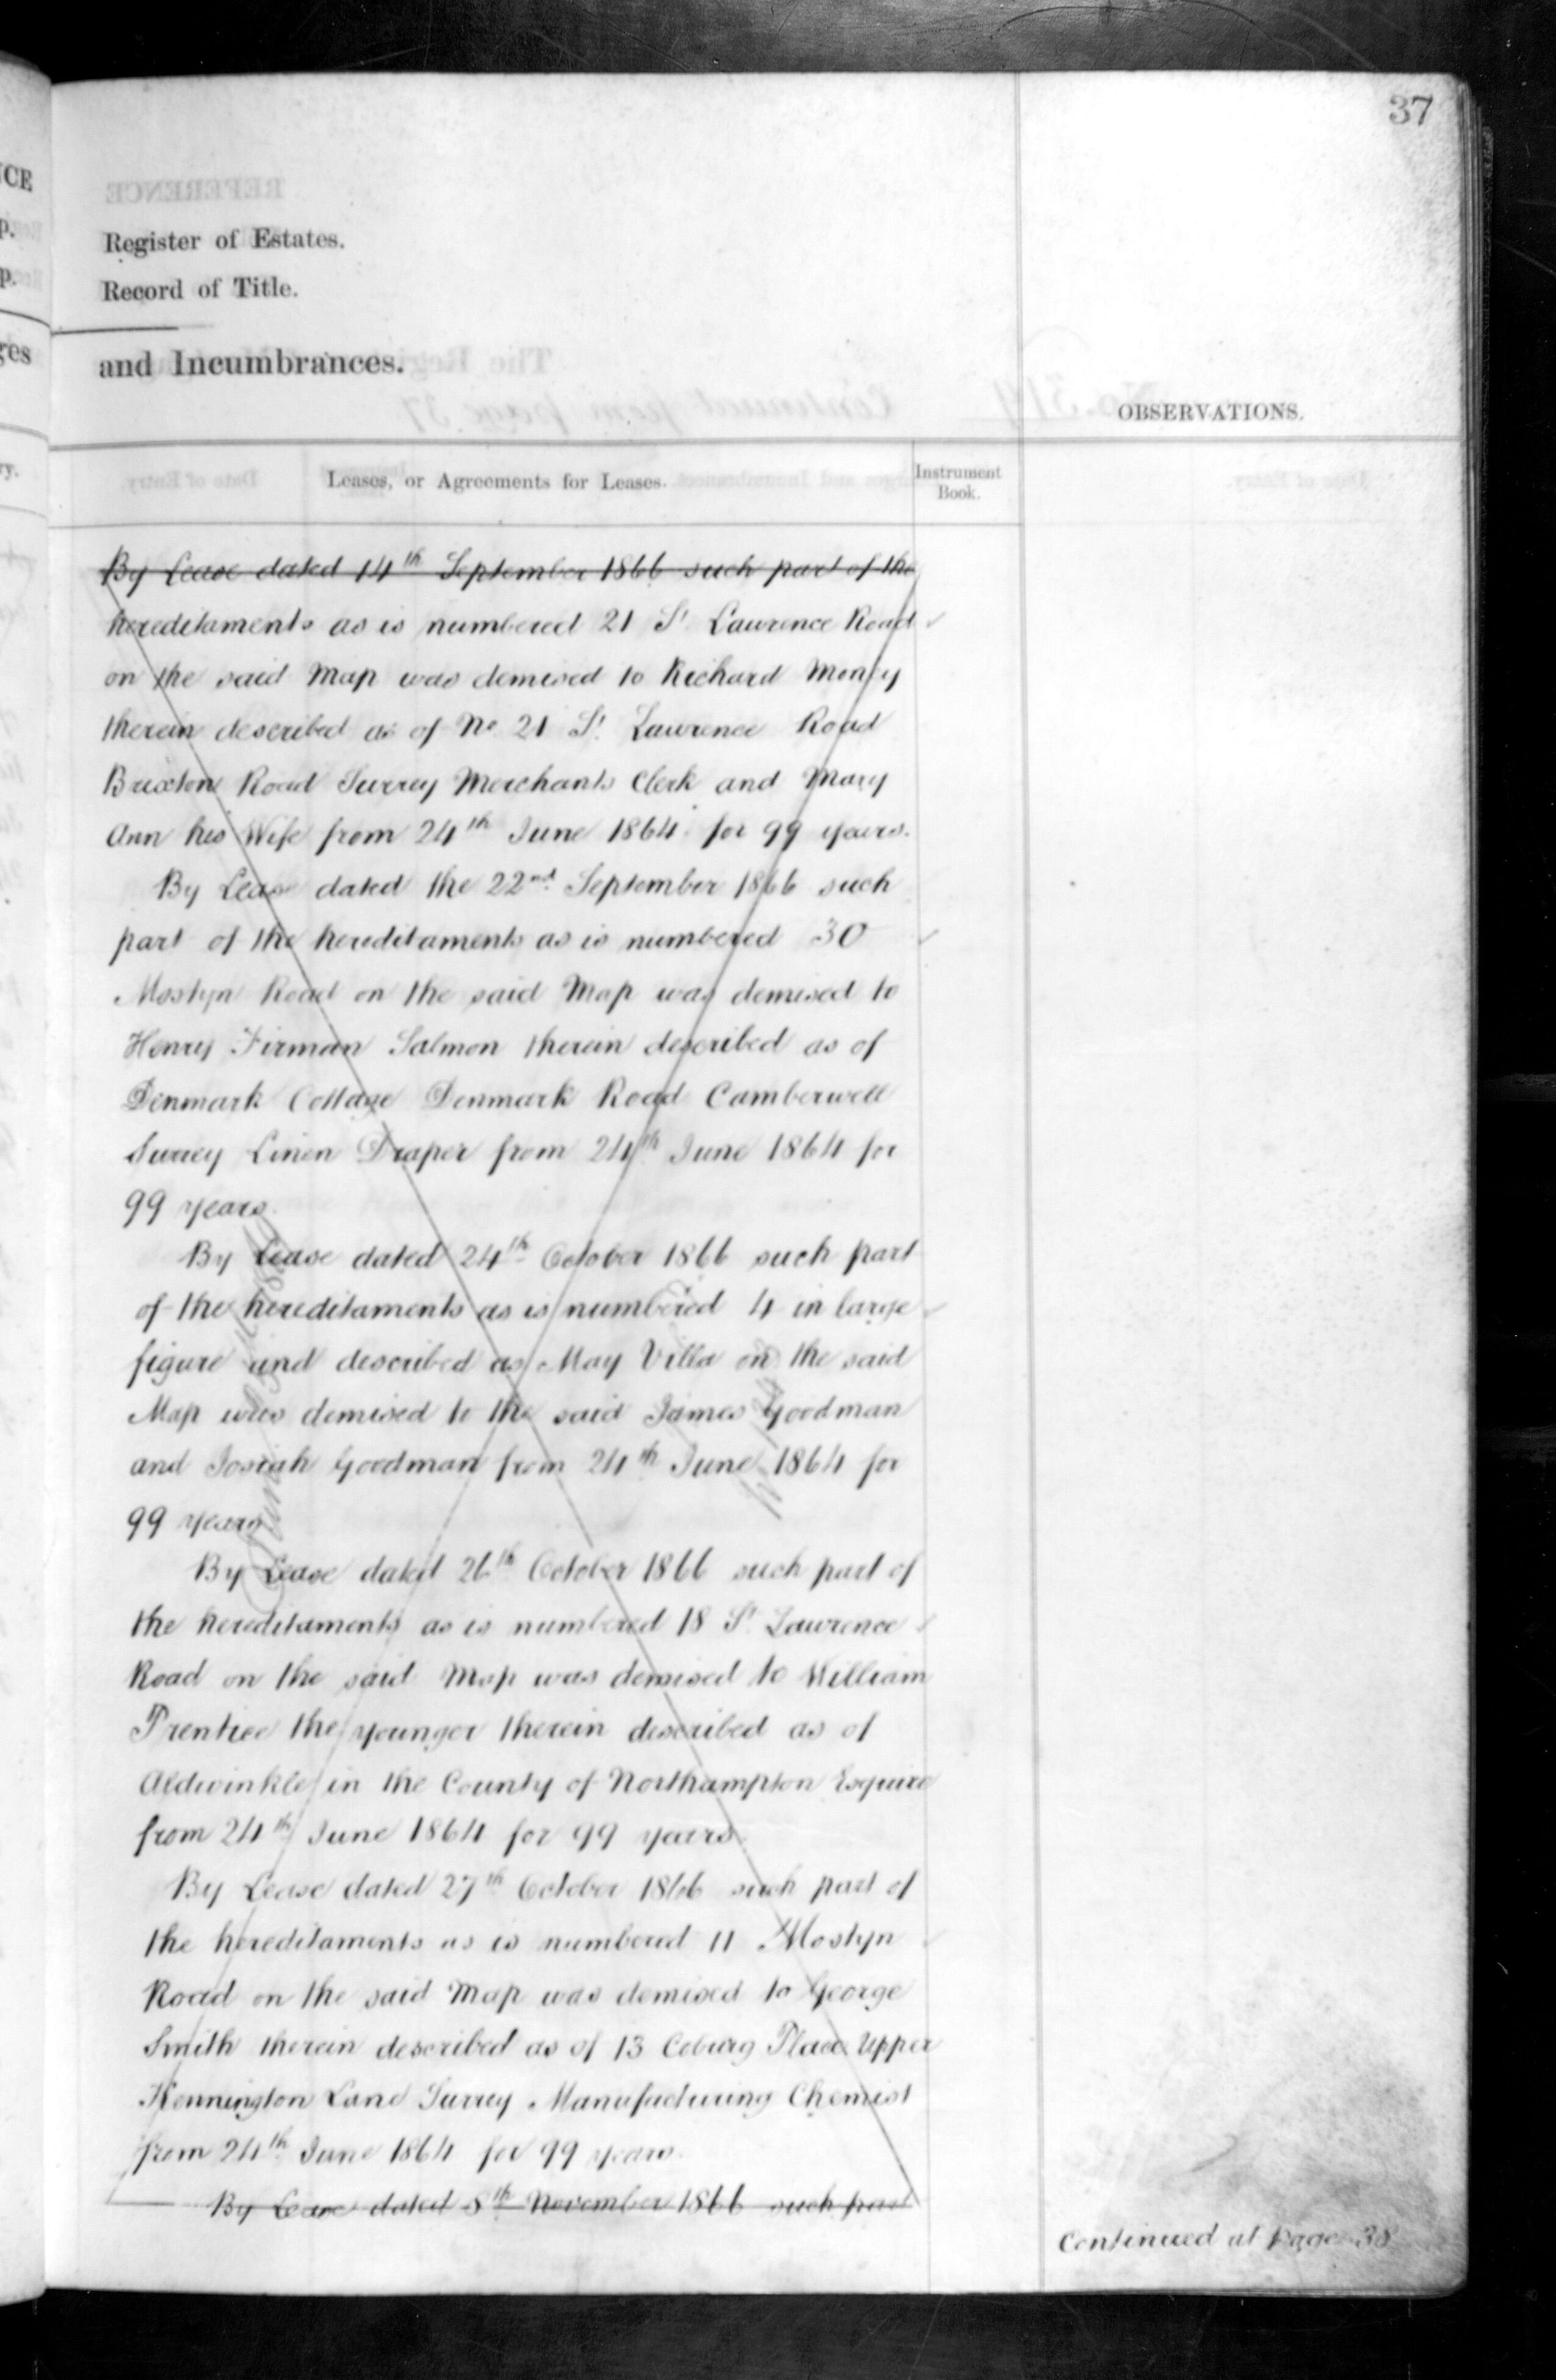 37
Register of Estates.
Record of Title.
and Incumbrances.
OBSERVATIONS.
Leases, or Agreements for Leases.
Instrument
Book.
By Lease dated 14th September 1866 such part of the
hereditaments as is numbered 21 St. Lawrence Road
on the said Map was demised to Richard Money
therein described as of No 21 St. Lawrence Road
Brixton Road Surrey Merchants Clerk and Mary
Ann his Wife from 24th June 1864 for 99 years.
By Lease dated the 22nd September 1866 such
part of the hereditaments as is numbered 30
Mostyn Road on the said Map was demised to
Henry Firman Salmon therein described as of
Denmark Cottage Denmark Road Camberwell
Surrey Linen Draper from 24th June 1864 for
99 years.
By Lease dated 24th October 1866 such part
of the hereditaments as is numbered 4 in large
figure and described as May Villa on the said
Map was demised to the said James Goodman
and Josiah Goodman from 24th June 1864 for
99 years
By Lease dated 26th October 1866 such part of
the hereditaments as is numbered 18 St. Lawrence
Road on the said Map was demised to William
Prentice the younger therein described as of
Aldwinkle in the County of Northampton Esquire
from 24th June 1864 for 99 years.
By Lease dated 27th October 1866 such part of
the hereditaments as is numbered 11 Mostyn
Road on the said Map was demised to George
Smith therein described as of 13 Coburg Place Upper
Kennington Lane Surrey Manufacturing Chemist
from 24th June 1864 for 99 years.
By Lease dated 8th November 1866 such part
Continued at Page 38